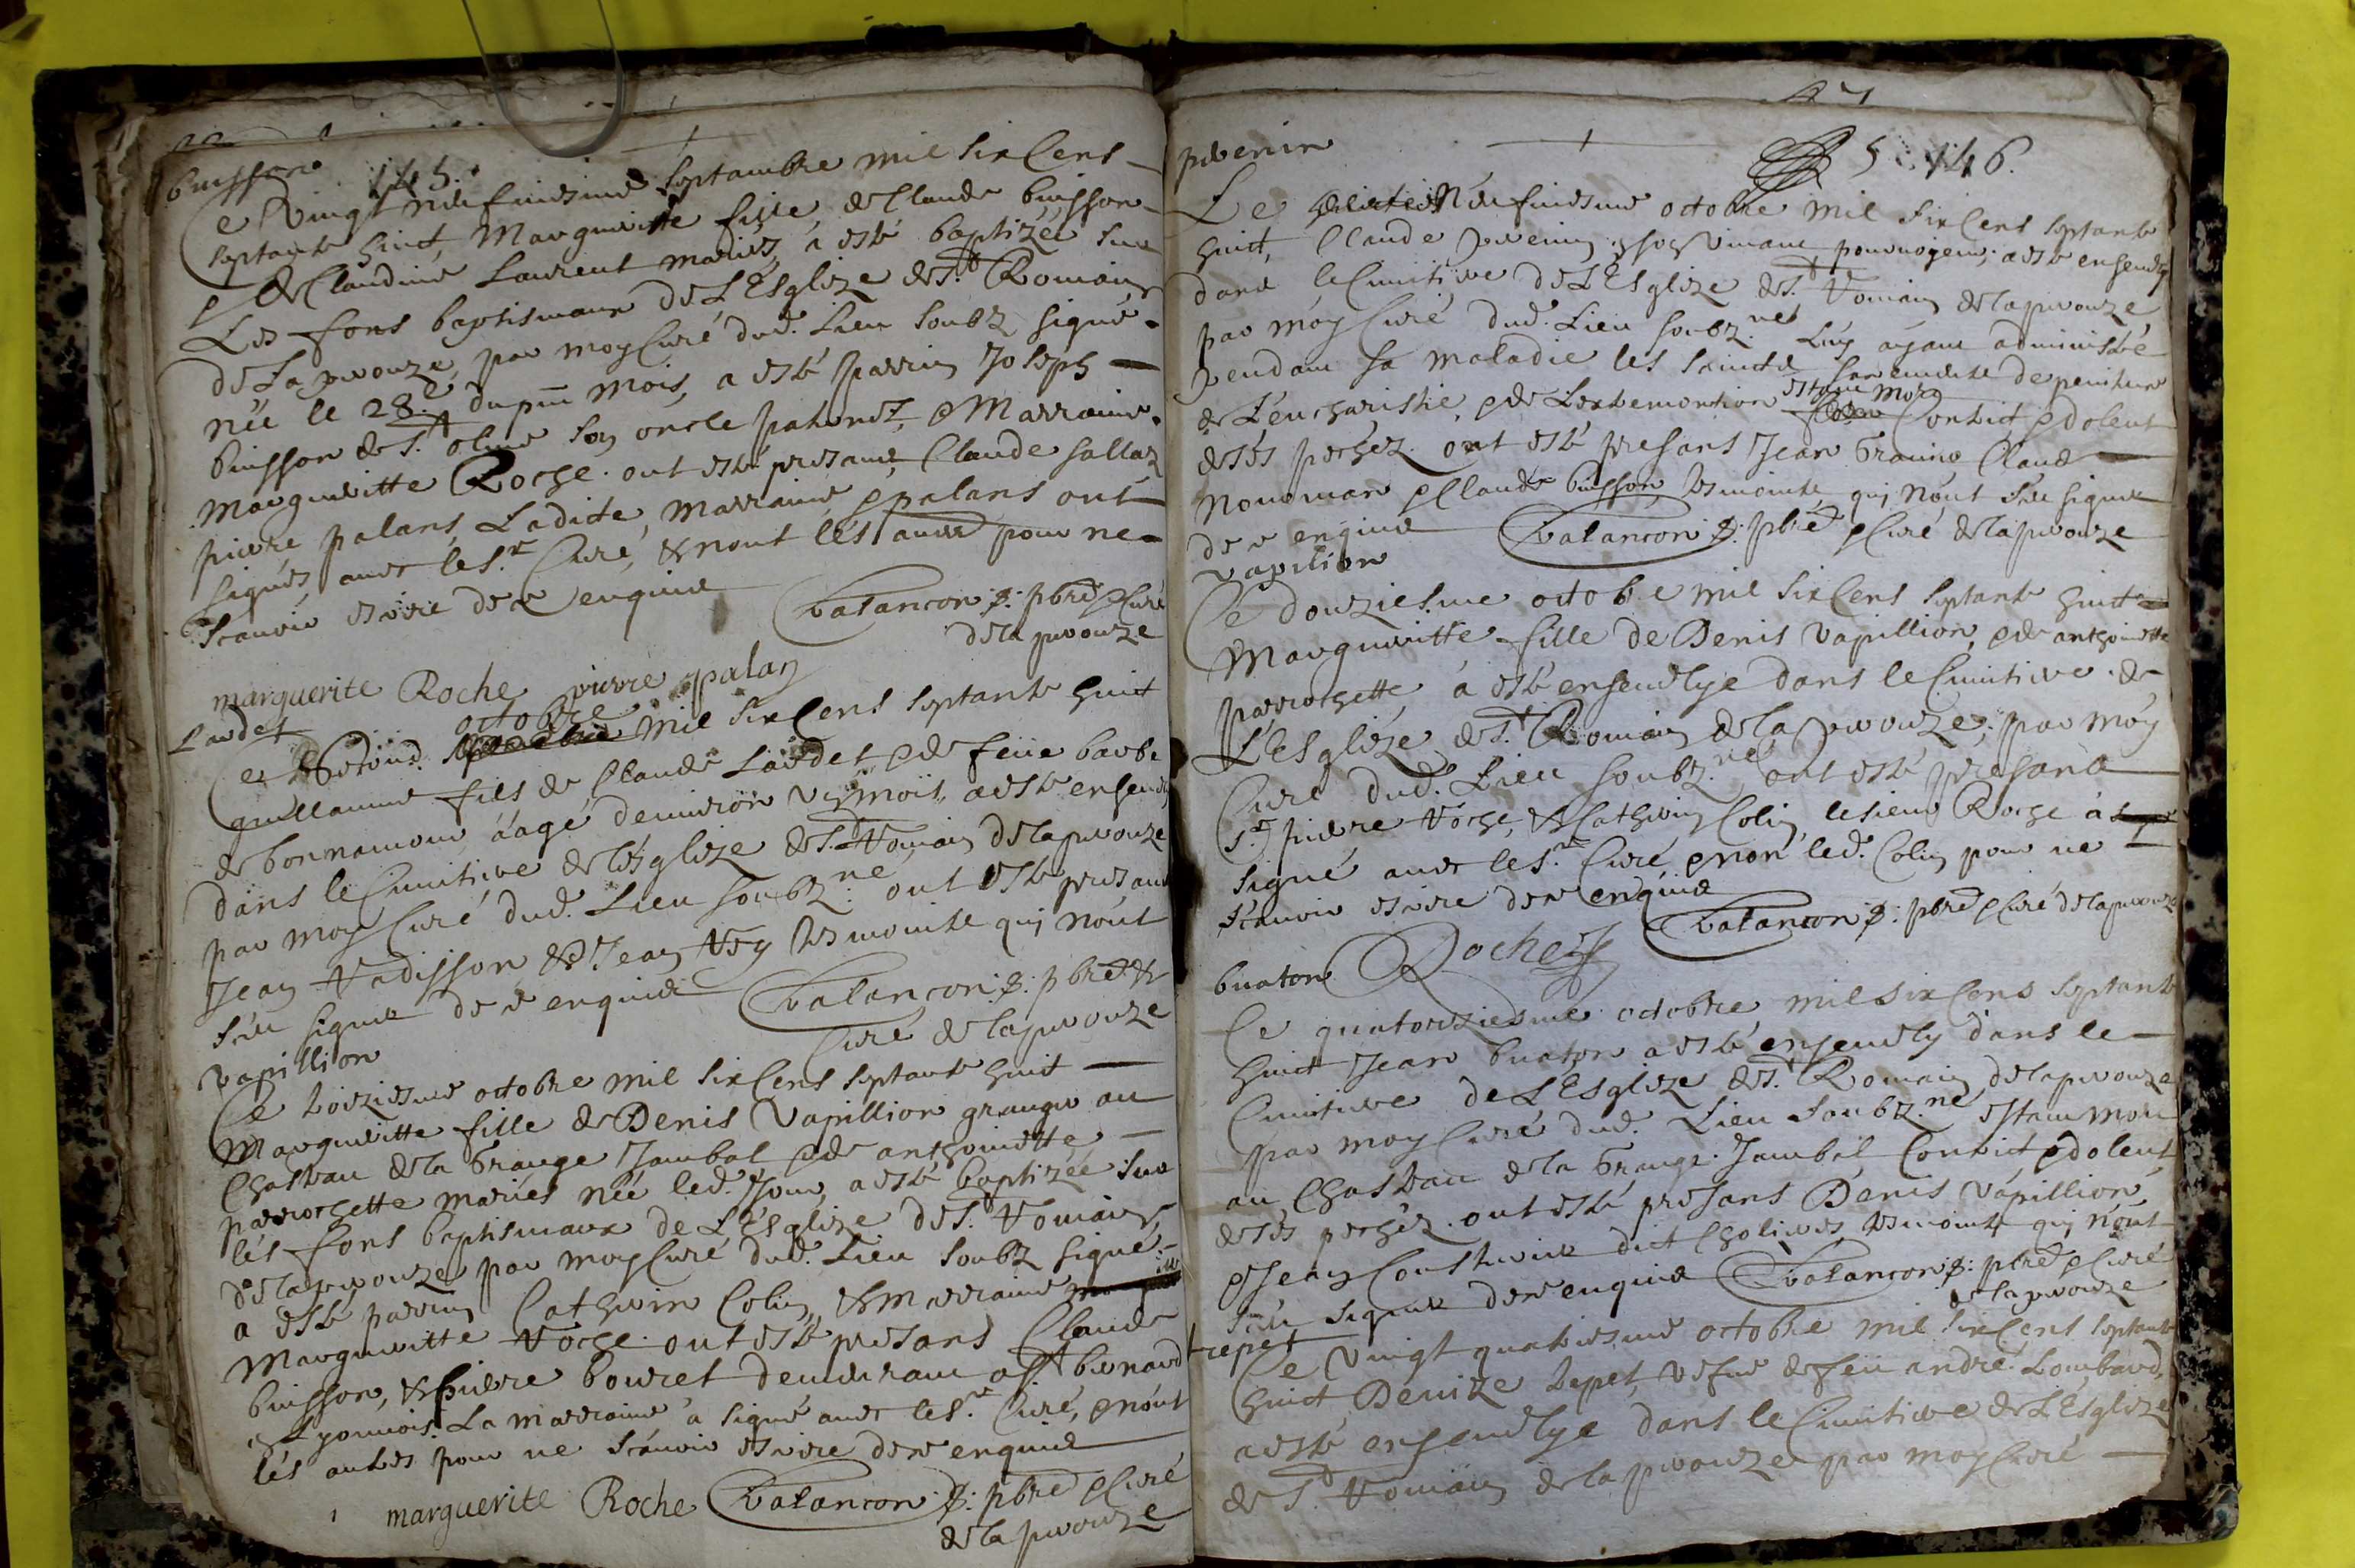 buisson 145.
Ce vingt neufuiesme septambre mil six Cens
septante huict, Margueritte fille de Claude buisson
& de Claudine Laurent mariés, a esté baptizée sur
Les fons baptismaux de L'Esglize de St. Romain
de Lapwouze, par moy Curé dud. Lieu soubz signé.
née le 28.e du pnt mois, a esté parrin Joseph
buisson de St. oliue son oncle paternel, & Marraine
Margueritte Roche. ont esté presans Claude sallaz
pierre palans, Ladite marraine & palans ont
signés auec le Sr. Curé, & nont les autres pour ne
scauoir escrire de ce enquis
Valancon p: pbre & Curé
de lapwouze
marguerite Roche pierre palan
Lardet
Ce second octobre mil six Cens septante huict
guillaume fils de Claude Lardet & de feüe barbe
de bonnamour aagé denuiron mois, a esté enseuely
dans le Cimitiere de l'esglize de St. Romain de lapwouze
par moy Curé dud. Lieu soubz.né ont esté presans
Jean Vadisson & Jean Rey tesmoints qui n'ont
sceu signer de ce enquis Valancon p: pbre &
Curé de lapwouze
Vapillion
Ce troiziesme octobre mil six Cens septante huict
Margueritte fille de Denis Vapillion granger au
Chasteau de la Grange Jambal & de anthoinette
perrochette mariés née led. Jour, a esté baptizée sur
les fons baptismaux de L'Esglize de St. Romain
de lapwouze par moy Curé dud. Lieu soubz signé
a esté parrin Catherin Colin, & marraine
Margueritte Roche. ont esté presans Claude
buisson, & pierre bouret demeurant a St bernard
Lyonnois. La marraine a signé auec le Sr. Curé, & n'ont
les autres pour ne scauoir escrire de ce enquis
marguerite Roche Valancon p: pbre & Curé
de lapwouze
5 146.
Le Neufuiesme octobre mil six Cens septante
huict, Claude a esté enseuely
dans le Cimitiere de L'Esglize de St. Romain de lapwouze
par moy Curé dud. Lieu soubz.né Luy ayant administré
pendant sa maladie les saincts sacrements de penitence
de L'eucharistie, & de Lextremontion estant mort Contrict & dolent
de ses pechez. ont esté presans Jean Granier Claude
& Claude buisson tesmoints qui n'ont sceu signer
de ce enquis Valancon p: pbre & Curé de lapwouze
Vapilion
Ce douziesme octobre mil six Cens septante huict
Margueritte fille de Denis Vapillion, & de anthoinette
perrochette, a esté enseuelye dans le Cimitiere de
L'Esglize de St. Romain de lapwouze, par moy
Curé dud. Lieu soubz.né ont esté presans
Sr. pierre Roche, & Catherin Colin, le sieur Roche a
signé auec le Sr. Curé & non led. Colin pour ne
scauoir escrire de ce enquis
Valancon p: pbre & Curé de lapwouze
Roche
buaton
Ce quatorziesme octobre mil six Cens septante
huict Jean buaton a esté enseuely dans le
Cimitiere de L'Esglize de St. Romain de lapwouze
par moy Curé dud. Lieu soubz.né estant mort
au Chasteau de la Grange Jambal Contrict & dolent
de ses pechez. ont esté presans Denis Vapillion
& Jean dict tesmoints qui n'ont
sceu signer de ce enquis Valancon p: pbre & Curé
de lapwouze
trepet
Ce Vingt quatriesme octobre mil six Cens septante
huict Denize trepet, vefue de feu andré Lombard,
a esté enseuelye dans le Cimitiere de L'Esglize
de St. Romain de lapwouze par moy Curé